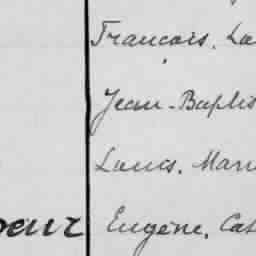 Francois, La
Jean-Baptis
Louis, Mari
Eugène, Cat